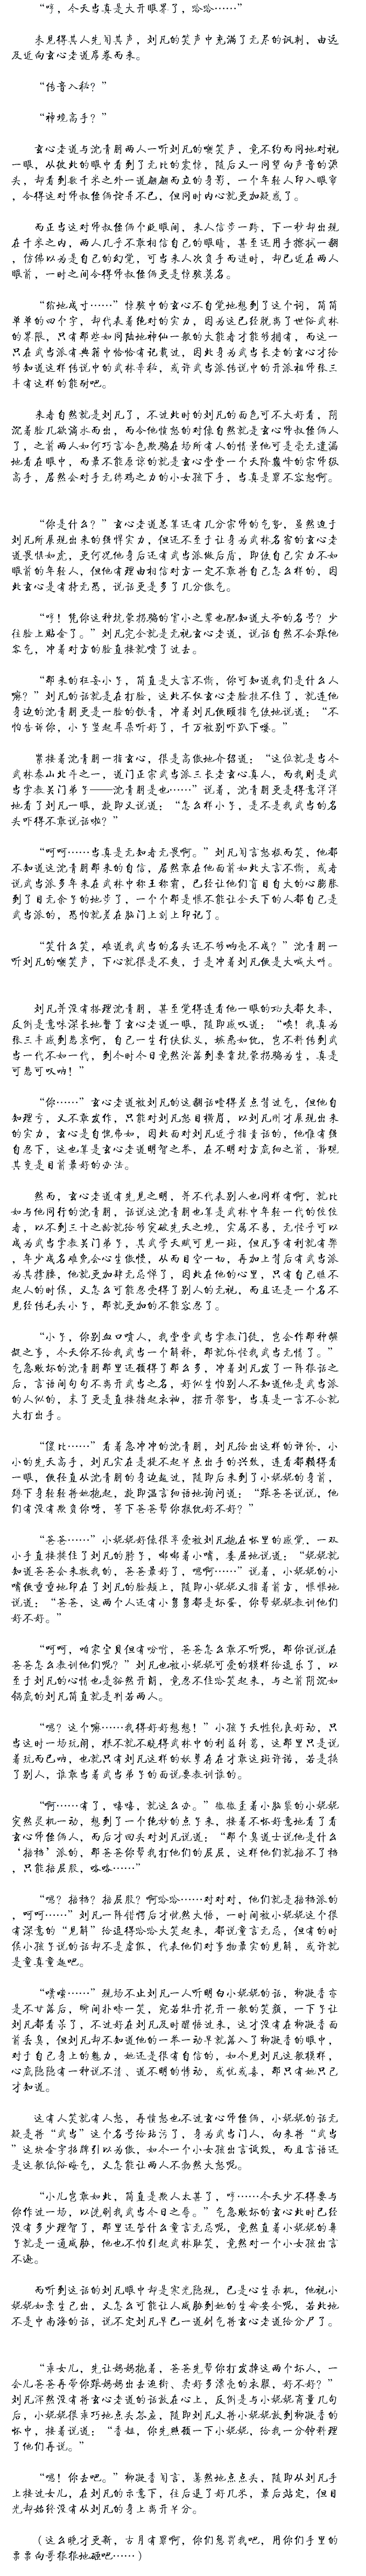 “哼，今天当真是大开眼界了，哈哈……”
未见得其人先闻其声，刘凡的笑声中充满了无尽的讽刺，由远
及近向玄心老道席卷而来。
“传音入秘？”
“神境高手？”
玄心老道与沈青朋两人一听刘凡的嘲笑声，竟不约而同地对视
一眼，从彼此的眼中看到了无比的震惊，随后又一同望向声音的源
头，却看到数千米之外一道翩翩而立的身影，一个年轻人印入眼帘
，令得这对师叔侄俩诧异不已，但同时内心就更加疑惑了。
而正当这对师叔侄俩个眨眼间，来人信步一跨，下一秒却出现
在千米之内，两人几乎不敢相信自己的眼睛，甚至还用手擦拭一翻
，仿佛以为是自己的幻觉，可当来人次负手而进时，却已近在两人
眼前，一时之间令得师叔侄俩更是惊骇莫名。
“缩地成寸……”惊骇中的玄心不自觉地想到了这个词，简简
单单的四个字，却代表着绝对的实力，因为这已经脱离了世俗武林
的界限，只有那些如同陆地神仙一般的大能者才能够拥有，而这一
只在武当派有典籍中恰恰有记载过，因此身为武当长老的玄心才给
够知道这样传说中的武林辛秘，或许武当派传说中的开派祖师张三
丰有这样的能耐吧。
来者自然就是刘凡了，不过此时的刘凡的面色可不大好看，阴
沉着脸几欲滴水而出，而令他愤怒的对像自然就是玄心师叔侄俩人
了，之前两人如何巧言令色欺骗在场所有人的情景他可是毫无遗漏
地看在眼中，而最不能原谅的就是玄心堂堂一个天阶巅峰的宗师级
高手，居然会对手无缚鸡之力的小女孩下手，当真是罪不容恕啊。
“你是什么？”玄心老道总算还有几分宗师的气势，虽然迫于
刘凡所展现出来的强悍实力，但还不至于让身为武林名宿的玄心老
道畏惧如虎，更何况他身后还有武当派做后盾，即使自己实力不如
眼前的年轻人，但他有理由相信对方一定不敢将自己怎么样的，因
此玄心是有持无恐，说话更是多了几分傲气。
“哼！凭你这种坑蒙拐骗的宵小之辈也配知道大爷的名号？少
往脸上贴金了。”刘凡完全就是无视玄心老道，说话自然不会跟他
客气，冲着对方的脸直接就喷了过去。
“那来的狂妄小子，简直是大言不惭，你可知道我们是什么人
嘛？”刘凡的话就是在打脸，这此不仅玄心老脸挂不住了，就连他
身边的沈青朋更是一脸的铁青，冲着刘凡便颐指气使地说道：“不
怕告诉你，小子竖起耳朵听好了，千万被别吓趴下喽。”
紧接着沈青朋一指玄心，很是高傲地介绍道：“这位就是当今
武林泰山北斗之一，道门正宗武当派三长老玄心真人，而我则是武
当掌教关门弟子——沈青朋是也……”说着，沈青朋更是得意洋洋
地看了刘凡一眼，旋即又说道：“怎么样小子，是不是我武当的名
头吓得不敢说话啦？”
“呵呵……当真是无知者无畏啊。”刘凡闻言怒极而笑，他都
不知道这沈青朋那来的自信，居然敢在他面前如此大言不惭，或者
说武当派多年来在武林中称王称霸，已经让他们盲目自大的心膨胀
到了目无余子的地步了，一个个那是恨不能让全天下的人都自己是
武当派的，恐怕就差在脑门上刻上印记了。
“笑什么笑，难道我武当的名头还不够响亮不成？”沈青朋一
听刘凡的嘲笑声，下心就很是不爽，于是冲着刘凡便是大喊大叫。
刘凡并没有搭理沈青朋，甚至觉得连看他一眼的功夫都欠奉，
反倒是意味深长地瞥了玄心老道一眼，随即感叹道：“唉！我真为
张三丰感到悲哀啊，自己一生行侠仗义，嫉恶如仇，岂不料传到武
当一代不如一代，到今时今日竟然沦落到要靠坑蒙拐骗为生，真是
可悲可叹呐！”
“你……”玄心老道被刘凡的这翻话噎得差点背过气，但他自
知理亏，又不敢发作，只能对刘凡怒目横眉，以刘凡刚才展现出来
的实力，玄心是自愧弗如，因此面对刘凡近乎指责话的，他唯有强
自忍下，这也算是玄心老道明智之举，在不明对方底细之前，静观
其变是目前最好的办法。
然而，玄心老道有先见之明，并不代表别人也同样有啊，就比
如与他同行的沈青朋，话说这沈青朋也算是武林中年轻一代的佼佼
者，以不到三十之龄就给够突破先天之境，实属不易，无怪乎可以
成为武当掌教关门弟子，其武学天赋可见一斑，但凡事有利就有弊
，年少成名难免会心生傲慢，从而目空一切，再加上背后有武当派
为其撑腰，他就更加肆无忌惮了，因此在他的心里，只有自己瞧不
起人的时候，又怎么可能忍受得了别人的无视，而且还是一个名不
见经传毛头小子，那就更加的不能容忍了。
“小子，你别血口喷人，我堂堂武当掌教门徒，岂会作那种龌
龊之事，今天你不给我武当一个解释，那就休怪我武当无情了。”
气急败坏的沈青朋那里还顾得了那么多，冲着刘凡发了一阵狠话之
后，言语间句句不离开武当之名，好似生怕别人不知道他是武当派
的人似的，末了更是直接撸起衣袖，摆开架势，当真是一言不合就
大打出手。
“傻比……”看着急冲冲的沈青朋，刘凡给出这样的评价，小
小的先天高手，刘凡实在是提不起半点出手的兴致，连看都懒得看
一眼，便径直从沈青朋的身边越过，随即后来到了小妮妮的身前，
蹲下身轻轻将她抱起，旋即温言细语地询问道：“跟爸爸说说，他
们有没有欺负你呀，等下爸爸帮你报仇好不好？”
“爸爸……”小妮妮好像很享受被刘凡抱在怀里的感觉，一双
小手直接搂住了刘凡的脖子，嘟嘟着小嘴，委屈地说道：“妮妮就
知道爸爸会来救我的，爸爸最好了，嗯啊……”说着，小妮妮的小
嘴便重重地印在了刘凡的脸颊上，随即小妮妮又指着前方，恨恨地
说道：“爸爸，这两个人还有小舅舅都是坏蛋，你帮妮妮教训他们
好不好。”
“呵呵，咱家宝贝但有吩咐，爸爸怎么敢不听呢，那你说说在
爸爸怎么教训他们呢？”刘凡也被小妮妮可爱的模样给逗乐了，以
至于刘凡的心情也是豁然开朗，竟忍不住哈笑起来，与之前阴沉如
锅底的刘凡简直就是判若两人。
“嗯？这个嘛……我得好好想想！”小孩子天性纯良好动，只
当这时一场玩闹，根不就不晓得武林中的利益纠葛，这那里只是说
着玩而已呐，也就只有刘凡这样的妖孽存在才敢这班许诺，若是换
了别人，谁敢当着武当弟子的面说要教训谁的。
“啊……有了，嘻嘻，就这么办。”微微歪着小脑袋的小妮妮
突然灵机一动，想到了一个绝妙的点子来，接着不怀好意地看了看
玄心师侄俩人，而后才回头对刘凡说道：“那个臭道士说他是什么
‘捂裆’派的，那爸爸你帮我打他们的屁屁，这样他们就捂不了裆
，只能捂屁股，咯咯……”
“嗯？捂裆？捂屁股？啊哈哈……对对对，他们就是捂裆派的
，啊呵……”刘凡一阵错愕后才恍然大悟，一时间被小妮妮这个很
有深意的“见解”给逗得哈哈大笑起来，都说童言无忌，但有的时
候小孩子说的话却不是虚假，代表他们对事物最实的见解，或许就
是童真童趣吧。
“噗嗤……”现场不止刘凡一人听明白小妮妮的话，柳凝香亦
是不甘落后，瞬间扑哧一笑，宛若牡丹花开一般的笑颜，一下子让
刘凡都看呆了，不过好在刘凡及时醒悟过来，这才没有在柳凝香面
前丢臭，但刘凡却不知道他的一举一动早就落入了柳凝香的眼中，
对于自己身上的魅力，她还是很有自信的，如今见刘凡这般模样，
心底隐隐有一种说不清、道不明的悸动，或忧或喜，那只有她只己
才知道。
这有人笑就有人怒，再愤怒也不过玄心师侄俩，小妮妮的话无
疑是将“武当”这个名号给玷污了，身为武当门人，向来将“武当
”这块金字招牌引以为傲，如今一个小女孩出言诋毁，而且言语还
是这般低俗晦气，又怎能让两人不勃然大怒呢。
“小儿岂敢如此，简直是欺人太甚了，哼……今天少不得要与
你作过一场，以洗刷我武当今日之辱。”气急败坏的玄心此时已经
没有多少理智了，那里还管什么童言无忌呢，竟然直着小妮妮的鼻
子就是一通威胁，他也不怕引起武林耻笑，竟然对一个小女孩出言
不逊。
而听到这话的刘凡眼中却是寒光隐现，已是心生杀机，他视小
妮妮如亲生己出，又怎么可能让人威胁到她的生命安全呢，若此地
不是中南海的话，说不定刘凡早已一道剑气将玄心老道给分尸了。
“乖女儿，先让妈妈抱着，爸爸先帮你打发掉这两个坏人，一
会儿爸爸再带你跟妈妈出去逛街、卖好多漂亮的衣服，好不好？”
刘凡浑然没有将玄心老道的话放在心上，反倒是与小妮妮商量几句
后，小妮妮很乖巧地点头答应，随即刘凡又将小妮妮放到柳凝香的
怀中，接着说道：“香姐，你先照顾一下小妮妮，给我一分钟料理
了他们再说。”
“嗯！你去吧。”柳凝香闻言，蓦然地点点头，随即从刘凡手
上接过女儿，在刘凡的示意下，往后退了好几米，最后站定，但目
光却始终没有从刘凡的身上离开半分。
（这么晚才更新，古月有罪啊，你们惩罚我吧，用你们手里的
票票向哥狠狠地砸吧……）